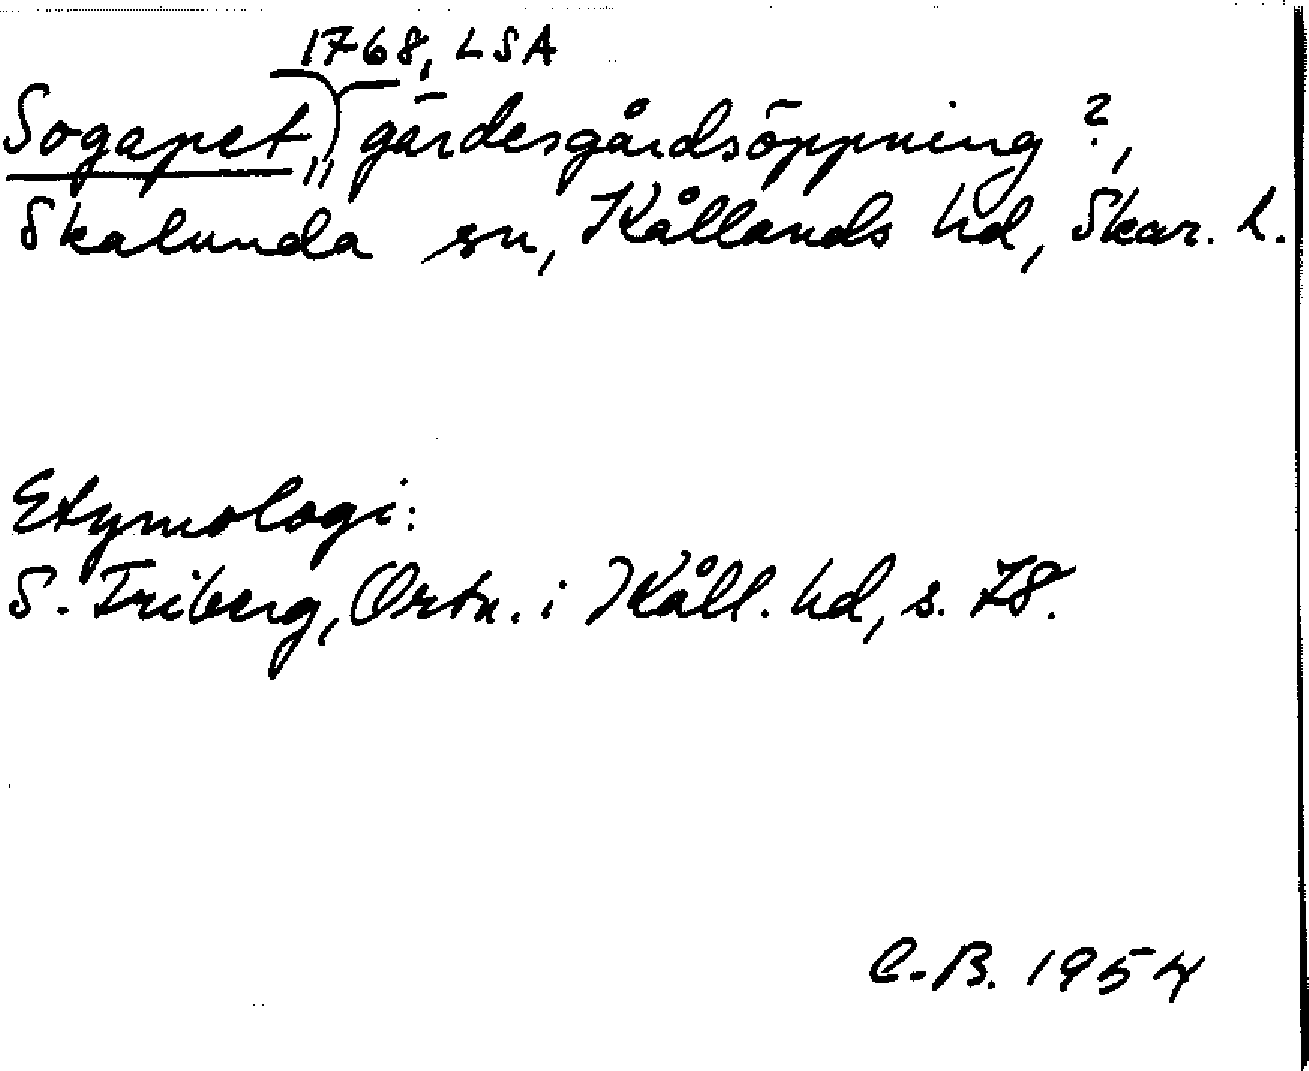 1768, LSA
Sogapet,, gärdesgårdsöppning ?,
Skalunda sn, Kållands hd, Skar. l.
Etymologi:
S. Friberg, Ortn. i Kåll. hd, s. 78.
C.B. 1954